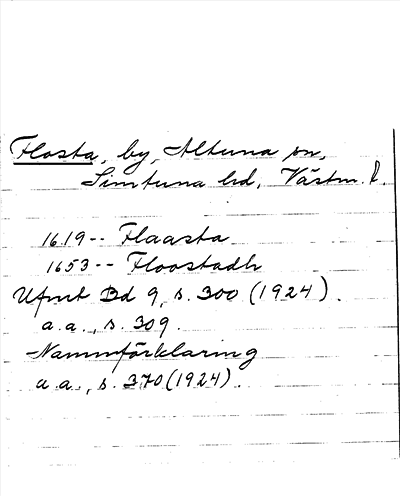 Flosta, by, Altuna sn,
Simtuna hd, Västm. l.
1619-- Flaasta
1653-- Floostadh
Ufmt Bd 9, s. 300 (1924).
a.a., s. 309.
Namnförklaring
a.a., s. 370 (1924).